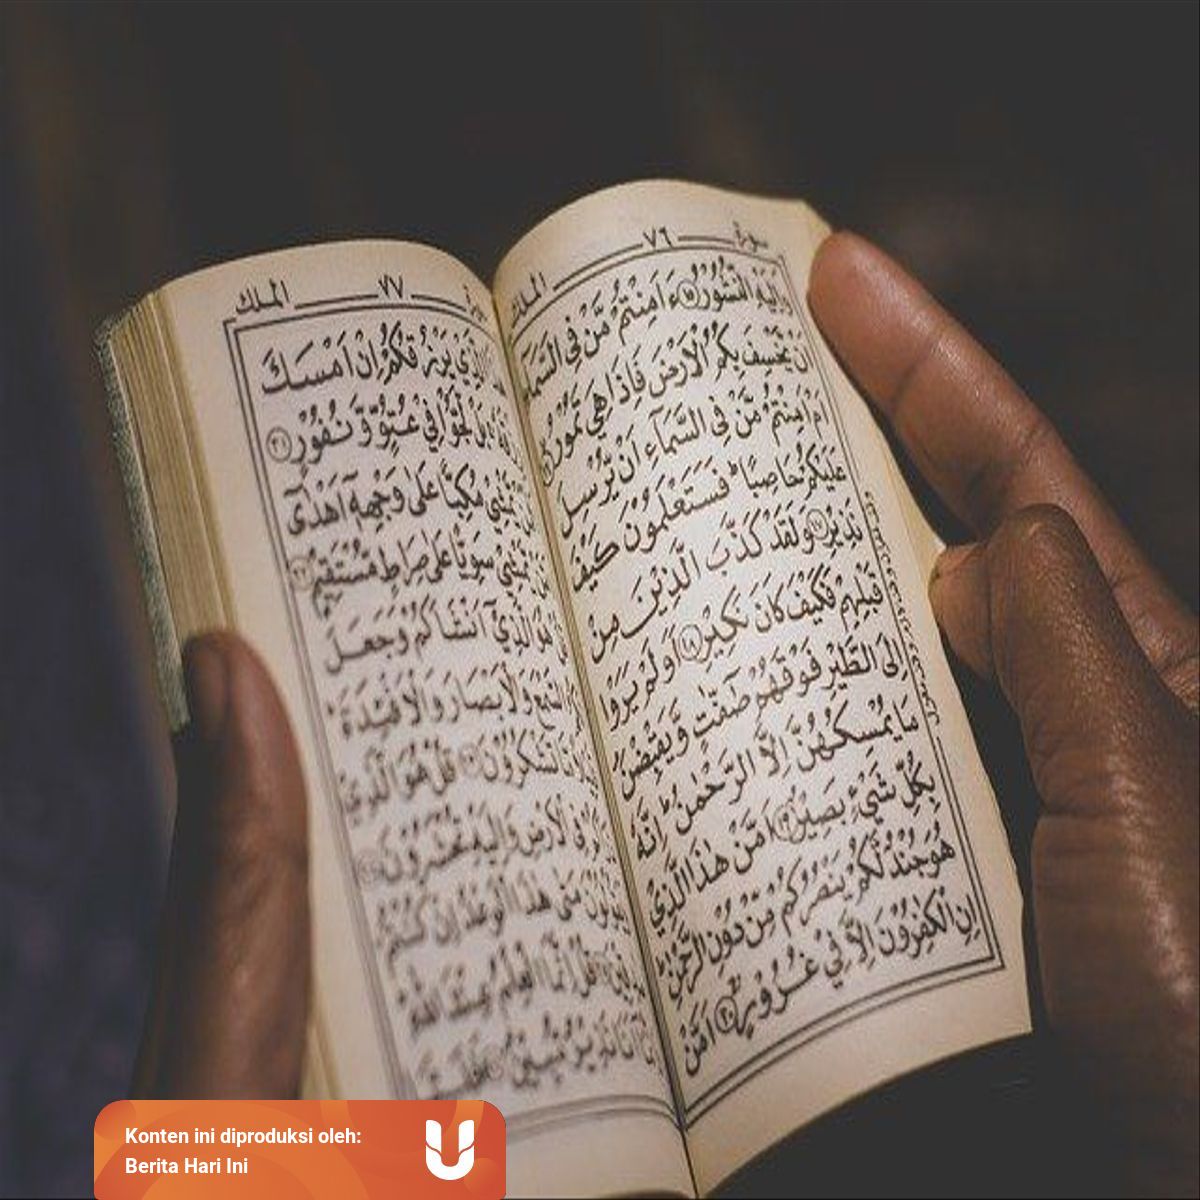 سورة ٧٦ الملك
وَاِلَيْهِ النُّشُوْرُ ⑮ ءَاَمِنْتُمْ مَّنْ فِى السَّمَآءِ
اَنْ يَّخْسِفَ بِكُمُ الْاَرْضَ فَاِذَا هِيَ تَمُوْرُ
اَمْ اَمِنْتُمْ مَّنْ فِى السَّمَآءِ اَنْ يُّرْسِلَ
عَلَيْكُمْ حَاصِبًا ؕ فَسَتَعْلَمُوْنَ كَيْفَ
نَذِيْرِ ⑰ وَلَقَدْ كَذَّبَ الَّذِيْنَ مِنْ
قَبْلِهِمْ فَكَيْفَ كَانَ نَكِيْرِ ⑱ اَوَلَمْ يَرَوْا
اِلَى الطَّيْرِ فَوْقَهُمْ صٰٓفّٰتٍ وَّيَقْبِضْنَ
مَا يُمْسِكُهُنَّ اِلَّا الرَّحْمٰنُ ؕ اِنَّهٗ
بِكُلِّ شَيْءٍۢ بَصِيْرٌ ⑲ اَمَّنْ هٰذَا الَّذِيْ
هُوَ جُنْدٌ لَّكُمْ يَنْصُرُكُمْ مِّنْ دُوْنِ الرَّحْمٰنِ ؕ
اِنِ الْكٰفِرُوْنَ اِلَّا فِيْ غُرُوْرٍ ⑳ اَمَّنْ
٧٧ الملك
الَّذِيْ يَرْزُقُكُمْ اِنْ اَمْسَكَ
بَلْ لَّجُّوْا فِيْ عُتُوٍّ وَّنُفُوْرٍ ㉑
يَّمْشِيْ مُكِبًّا عَلٰى وَجْهِهٖٓ اَهْدٰٓى
يَّمْشِيْ سَوِيًّا عَلٰى صِرَاطٍ مُّسْتَقِيْمٍ ㉒
هُوَ الَّذِيْٓ اَنْشَاَكُمْ وَجَعَلَ
السَّمْعَ وَالْاَبْصَارَ وَالْاَفْـِٕدَةَ
تَشْكُرُوْنَ ㉓ قُلْ هُوَ الَّذِيْ
فِى الْاَرْضِ وَاِلَيْهِ تُحْشَرُوْنَ ㉔
يَقُوْلُوْنَ مَتٰى هٰذَا الْوَعْدُ اِنْ كُنْتُمْ
قُلْ اِنَّمَا الْعِلْمُ عِنْدَ اللّٰهِ
اَنَا نَذِيْرٌ مُّبِيْنٌ
Konten ini diproduksi oleh:
Berita Hari Ini